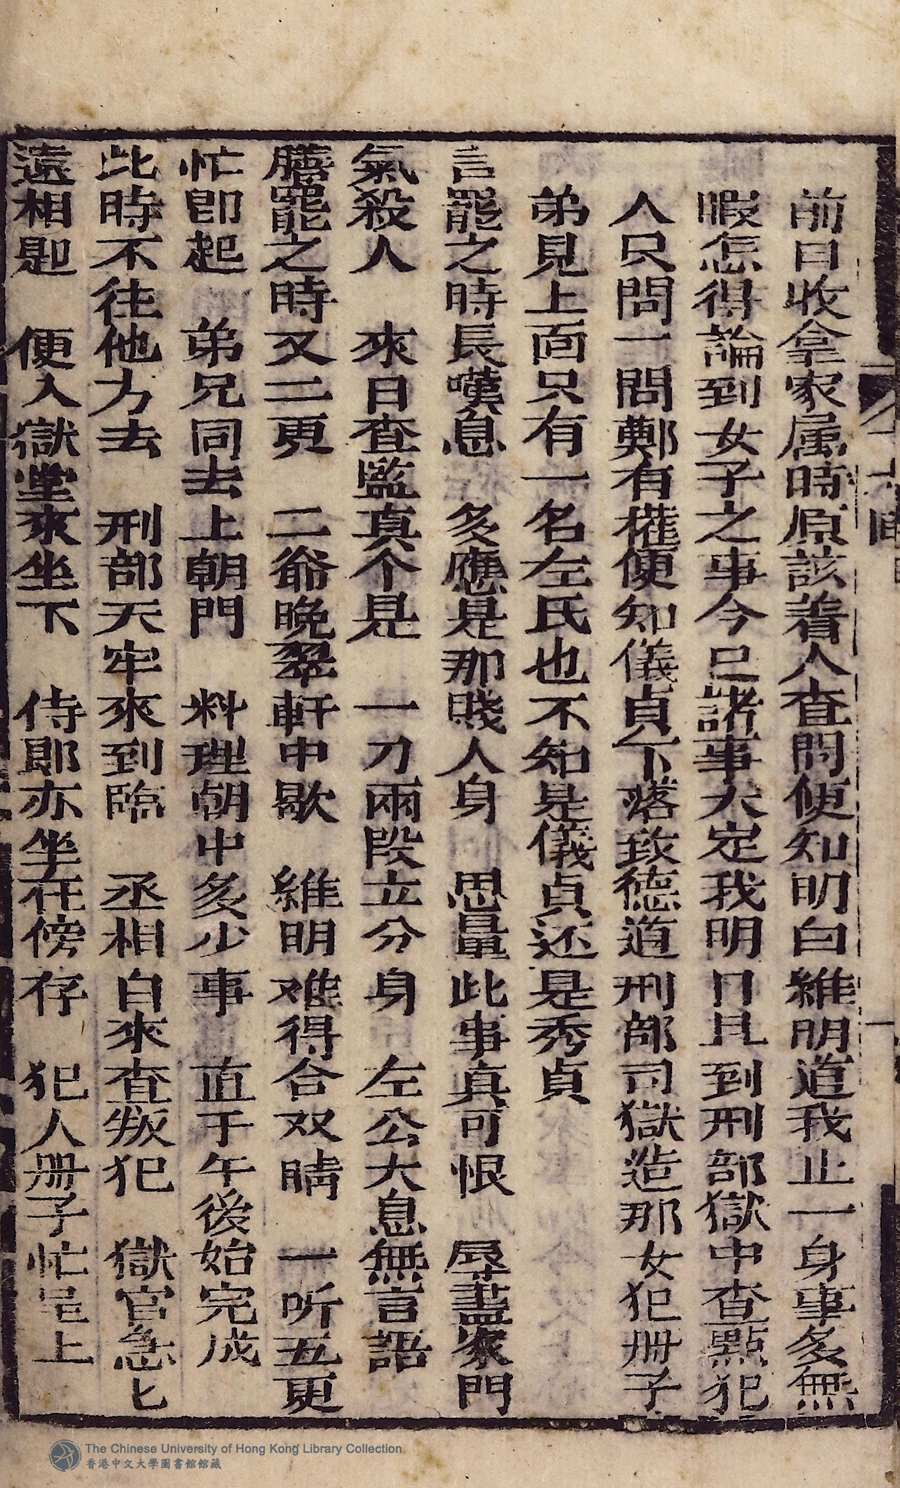 前日收拿家属時原該着人查問便知明白維明道我止一身事多無
暇怎得論到女子之事今已諸事大定我明日且到刑部獄中查點犯
人只問一問鄭有權便知儀貞下落致德道刑部司獄造那女犯册子
弟見上面只有一名左氏也不知是儀貞还是秀貞
言罷之時長嘆息　多應是那賤人身　思量此事真可恨　辱盡家門
氣殺人　來日查監真个是　一刀兩段立分身　左公大息無言語
膳罷之時又二更　二爺晚翠軒中歇　維明难得合双睛　一听五更
忙即起　弟兄同去上朝門　料理朝中多少事　直于午後始完成
此時不往他方去　刑部天牢來到臨　丞相自來查叛犯　獄官急匕
遠相迎　便入獄堂來坐下　侍郎亦坐在傍存　犯人册子忙呈上
The Chinese University of Hong Kong Library Collection
香港中文大學圖書館館藏